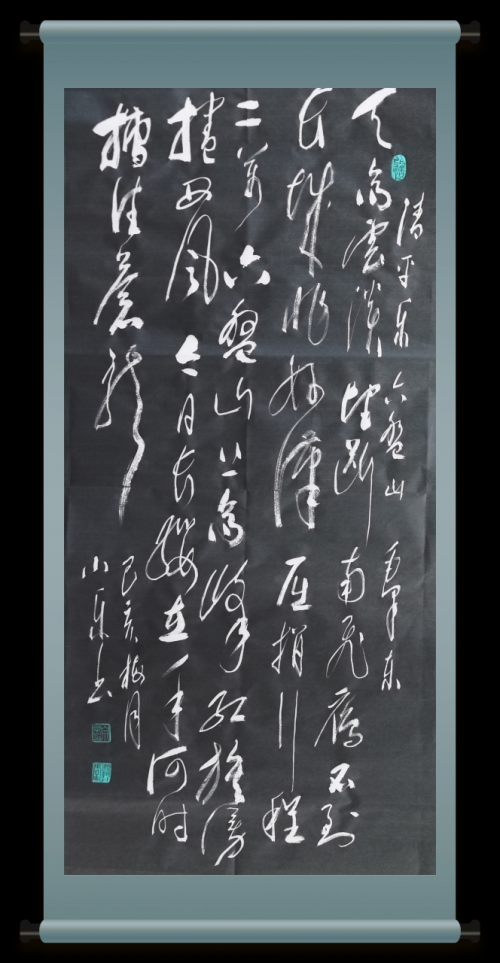 清平乐 六盤山 毛泽东
天高雲淡望断南飞雁不到
长城非好漢屈指行程
二萬六盤山上高峰红旗漫
捲西风今日长缨在手何时
缚住蒼龙
己亥梅月
小乐书